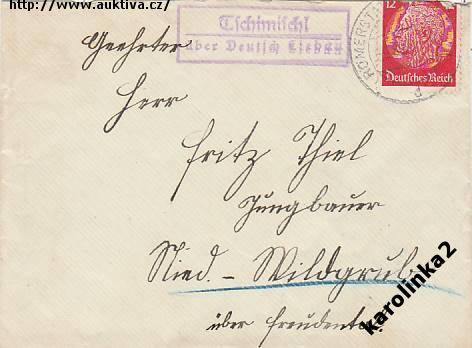 http://www.auktiva.cz/
Tschimischl
über Deutsch Liebau
RÖMERST
12
Deutsches Reich
Geehrter
Herr
Fritz Thiel
Jungbauer
Nied.-Wildgrub
über Freudental
karolinka2